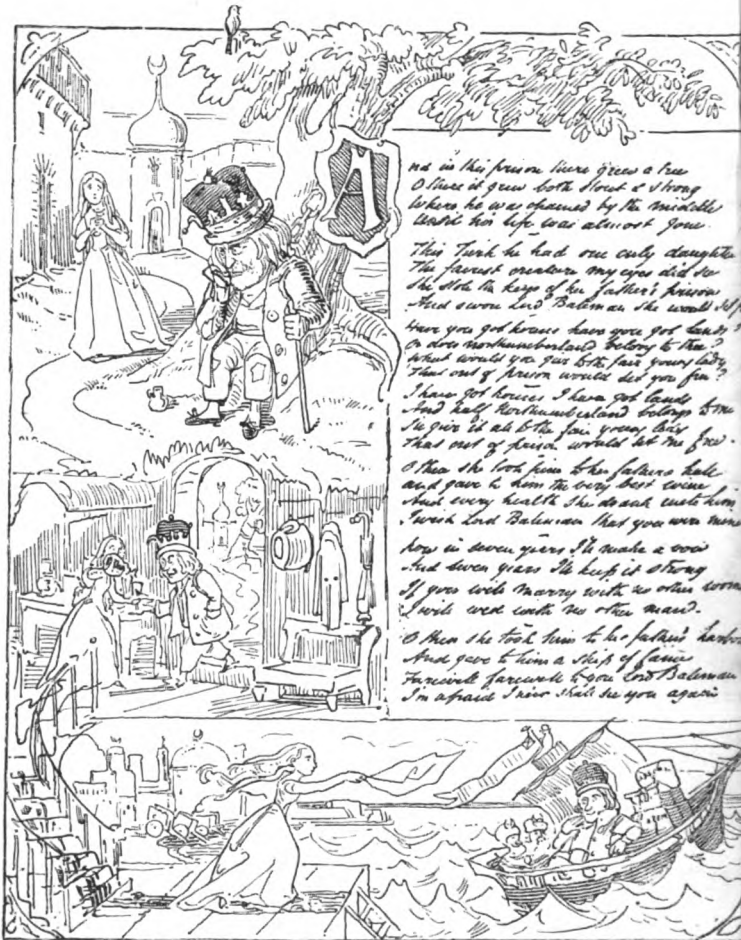 And in this prison there grew a tree
O there it grew both stout & strong
Where he was chained by the middle
Until his life was almost gone.
This Turk he had one only daughter
The fairest creature my eyes did see
She stole the keys of her father's prison
And swore Lord Bateman she would
Have you got houses have you got lands
Or does Northumberland belong to thee?
What would you give to the fair young lady
That out of prison would set you free?
I have got houses I have got lands
And half Northumberland belongs to me
I'll give it all to the fair young lady
That out of prison would let me free.
O then she took him to her fathers hall
and gave to him the very best wine
And every health she drank unto him
I wish Lord Bateman that you were mine
Now in seven years I'll make a vow
And seven years I'll keep it strong
If you will marry with no other
I will wed with no other man.
O then she took him to her fathers
And gave to him a ship of fame
Farewell farewell to you Lord Bateman
I'm afraid I never shall see you again